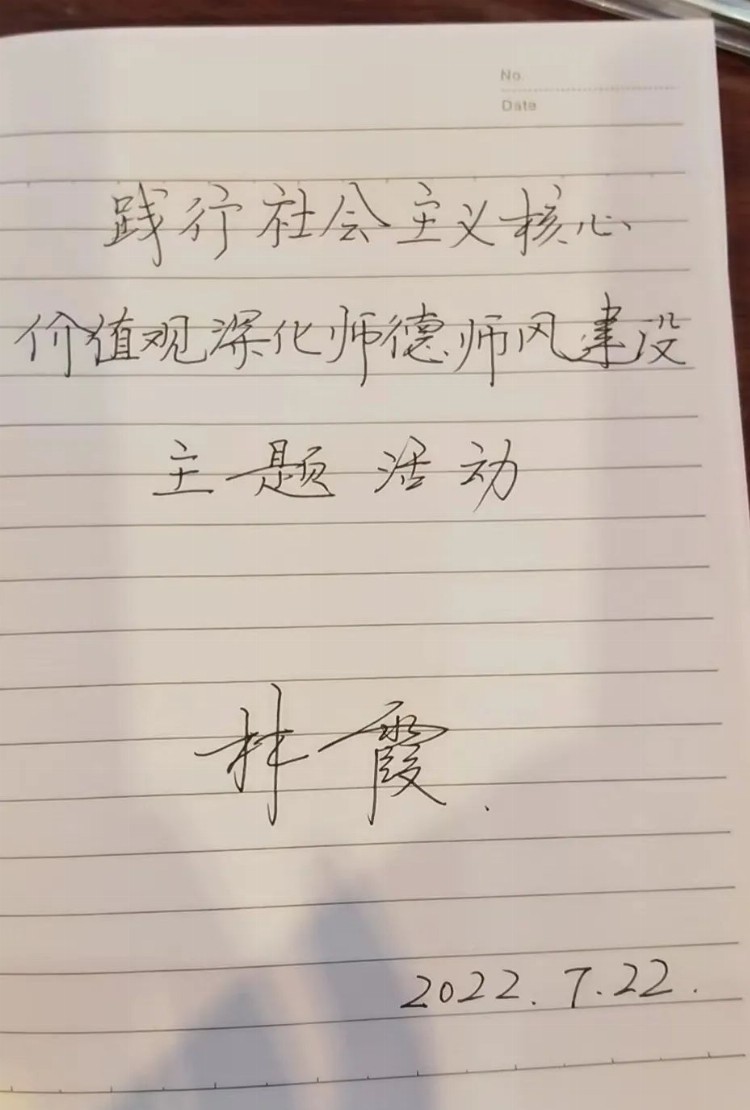 No.
Date
践行社会主义核心
价值观深化师德师风建设
主题活动
林霞.
2022.7.22.